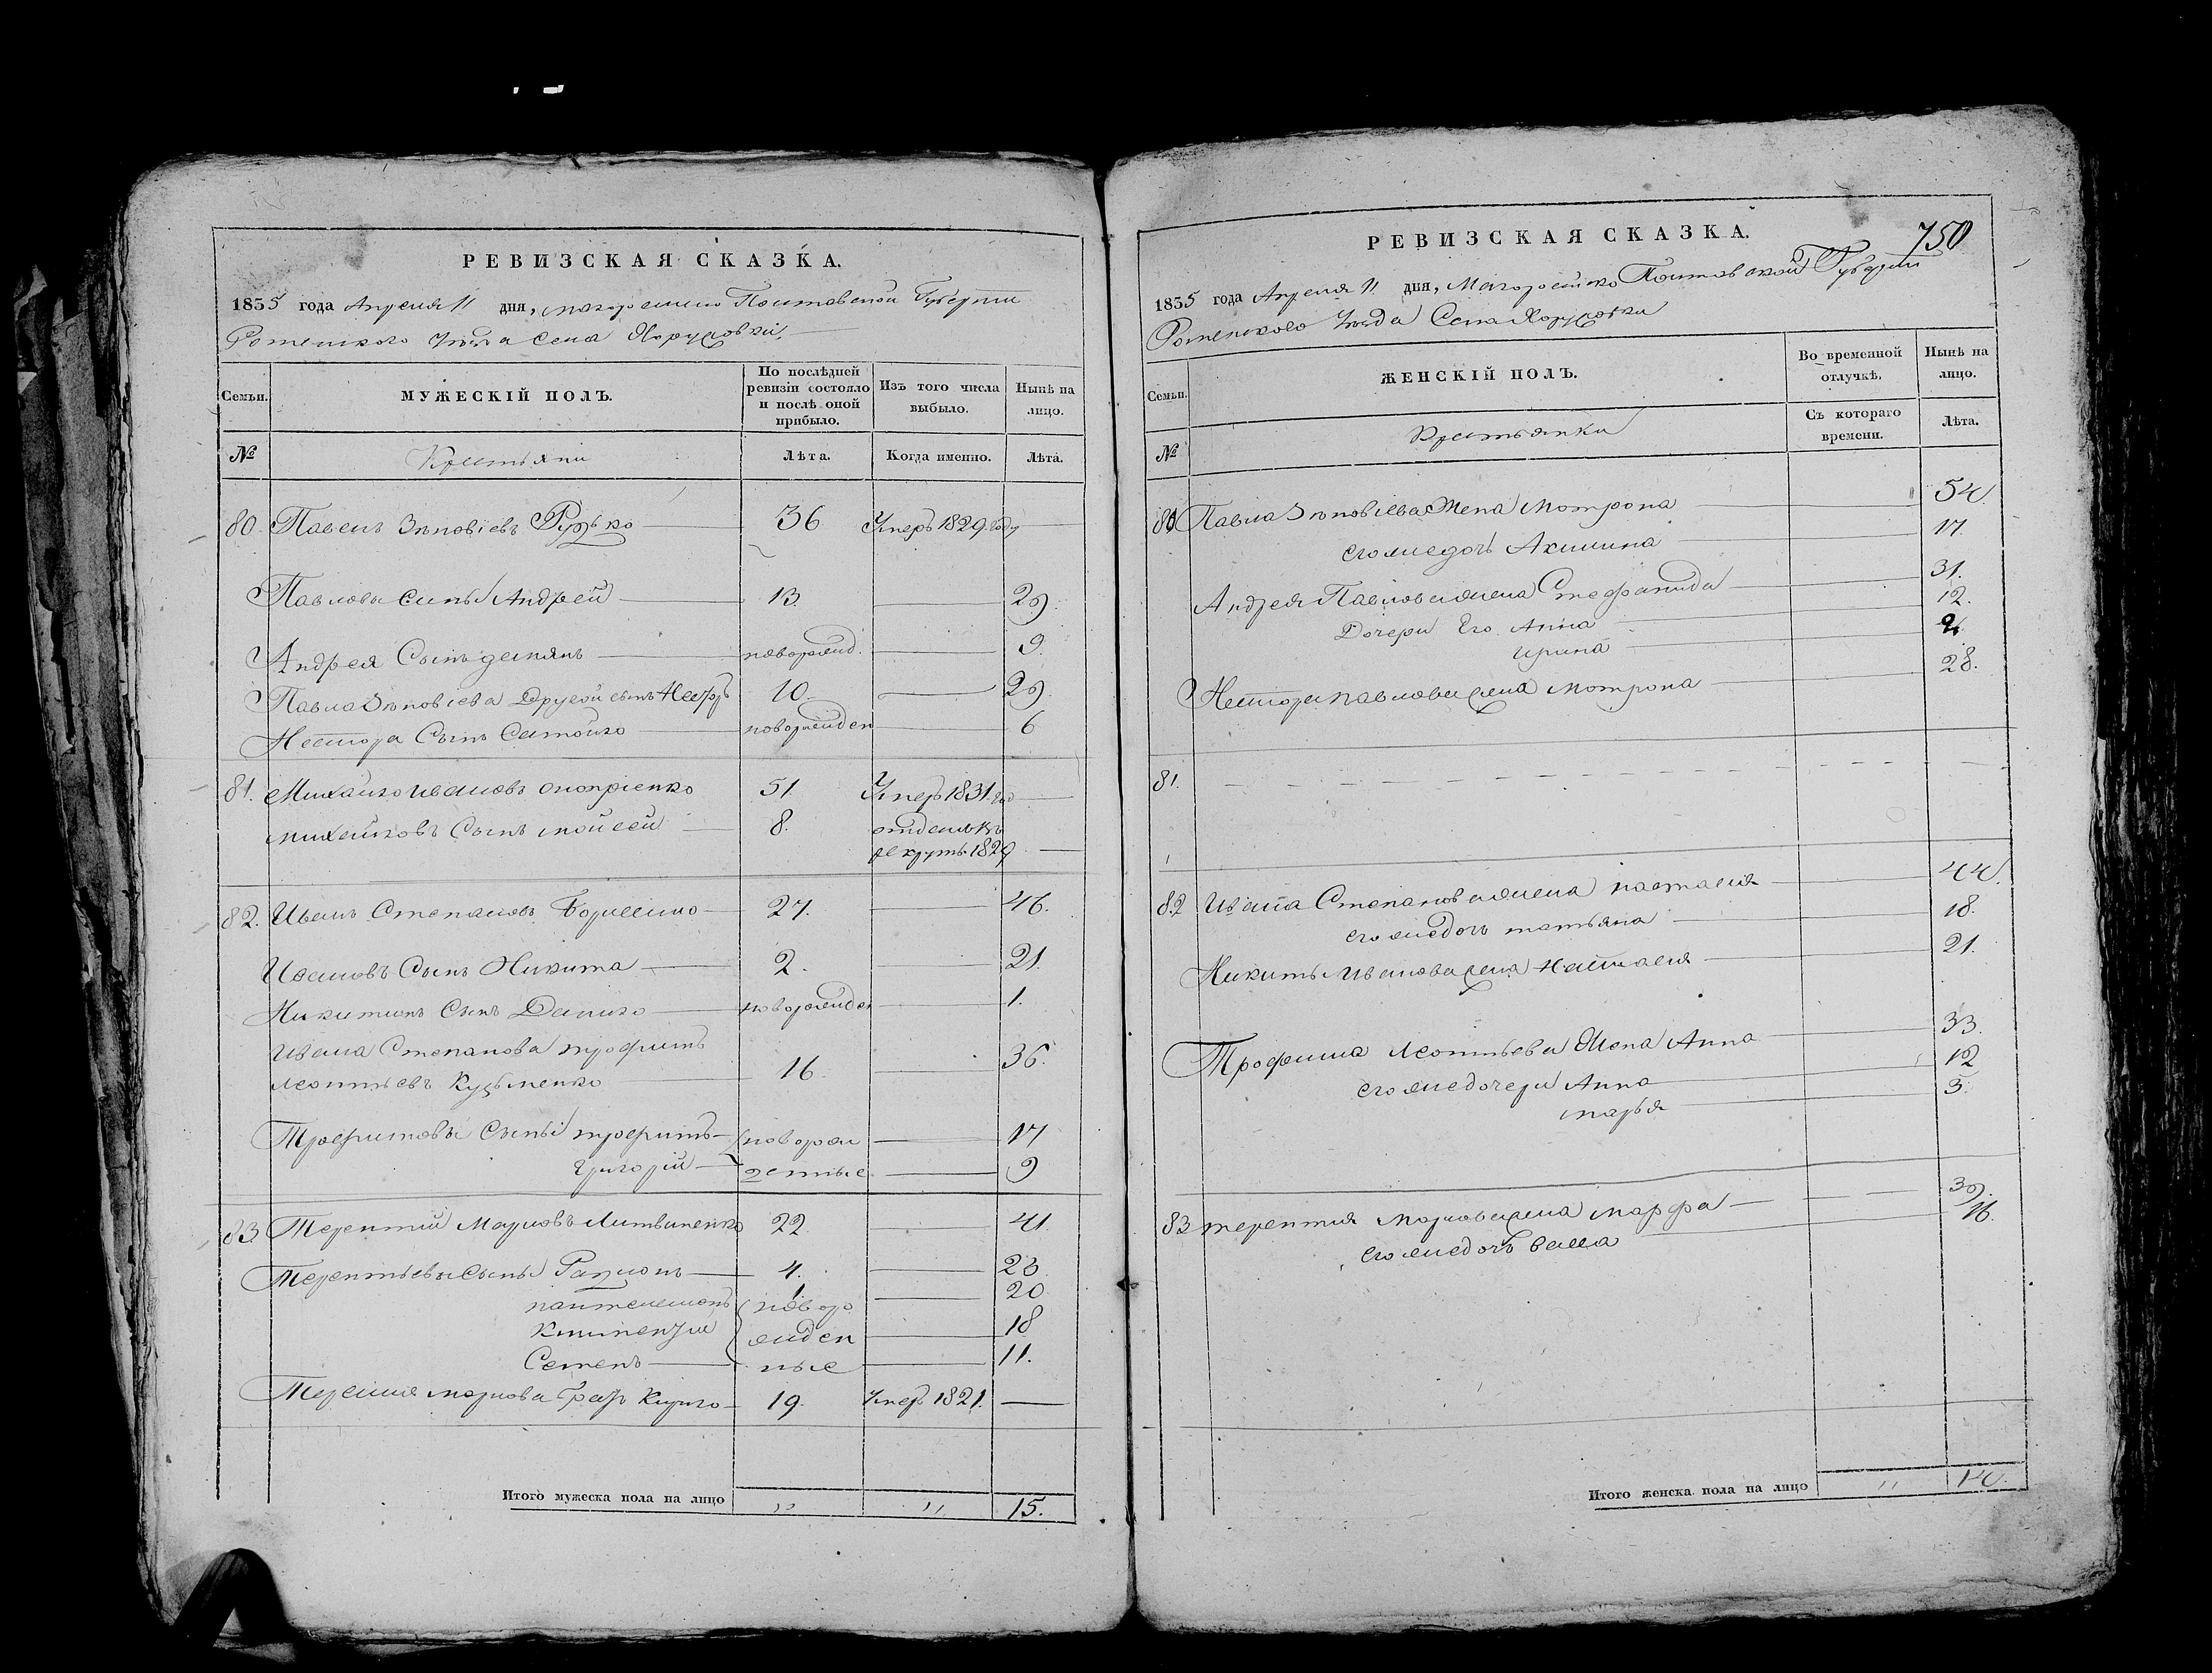 РЕВИЗСКАЯ СКАЗКА.
1835 года Апреля 11 дня, Полтавской Губерніи
Роменского уезда Села
Семьи.
МУЖЕСКІЙ ПОЛЪ.
По послѣдней ревизіи состояло и послѣ оной прибыло.
Изъ того числа выбыло.
Нынѣ на лицо.
№
Крестьяни
Лѣта.
Когда именно.
Лѣта.
80 Павелъ Зѣновіевъ Рузько 36 Умеръ 1829 году
Павловы сины Андрей 13. 29.
Андрея Сынъ демянъ новорожд. 9.
Павла Зѣновіева Другой сынъ 10. 29.
Нестора Сынъ Самойло новорожден 6
81. Михайло Ивановъ Оноприенко 51 Умеръ 1831 год
Михайловъ Сынъ Мойсей 8. отданъ въ
рекруты 1829
82. Иванъ Степановъ 27. 46.
Ивановъ Сынъ Никита 2. 21.
Никитинъ Сынъ Данило новорожден 1.
Ивана Степанова трофимъ
леонтьевъ Кузьменко 16 36.
Трофимовы Сыны трофимъ новорож 17
григорій денные 9
83. Терентий Марковъ Литвиненко 22. 41.
Терентьевы Сыны Радионъ 4. 23.
пантелемонъ 1. новоро 20
18
Семенъ жден ные 11.
Маркова братъ Кирило 19. Умеръ 1821.
Итого мужеска пола на лицо 15.
РЕВИЗСКАЯ СКАЗКА. 750
1835 года Апреля 11 дня, Полтавской Губерніи
Роменского уезда Села
Семьи.
ЖЕНСКІЙ ПОЛЪ.
Во временной отлучкѣ.
Нынѣ на лицо.
№
Крестьянки
Съ котораго времени.
Лѣта.
80 Павла Зѣновіева Жена Мотрона 54.
его же дочь Акилина 17.
Андрея Павлова жена Стефанида 31.
Дочери Его Анна 12.
Ирина
Нестора павлова жена Мотрона 28.
81.
82 Ивана Степанова жена настасия 44.
его же дочь татьяна 18.
Никиты Иванова жена Настасия 21.
Трофима Леонтьева Жена Анна 33.
его же дочери Анна 12
марья 3.
83 терентия Маркова жена марфа 39.
его же дочь васса 16.
Итого женска пола на лицо 14.